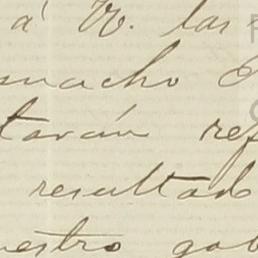 á V. las
macho
tarán ref
resultad
uestro gob